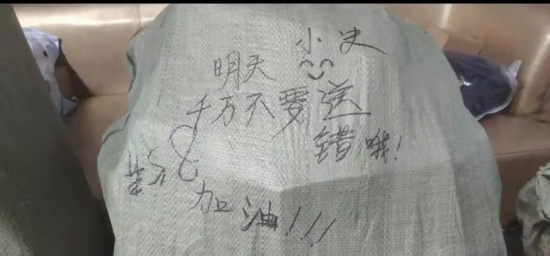 小史
明天
千万不要送
错哦!
加油!!!